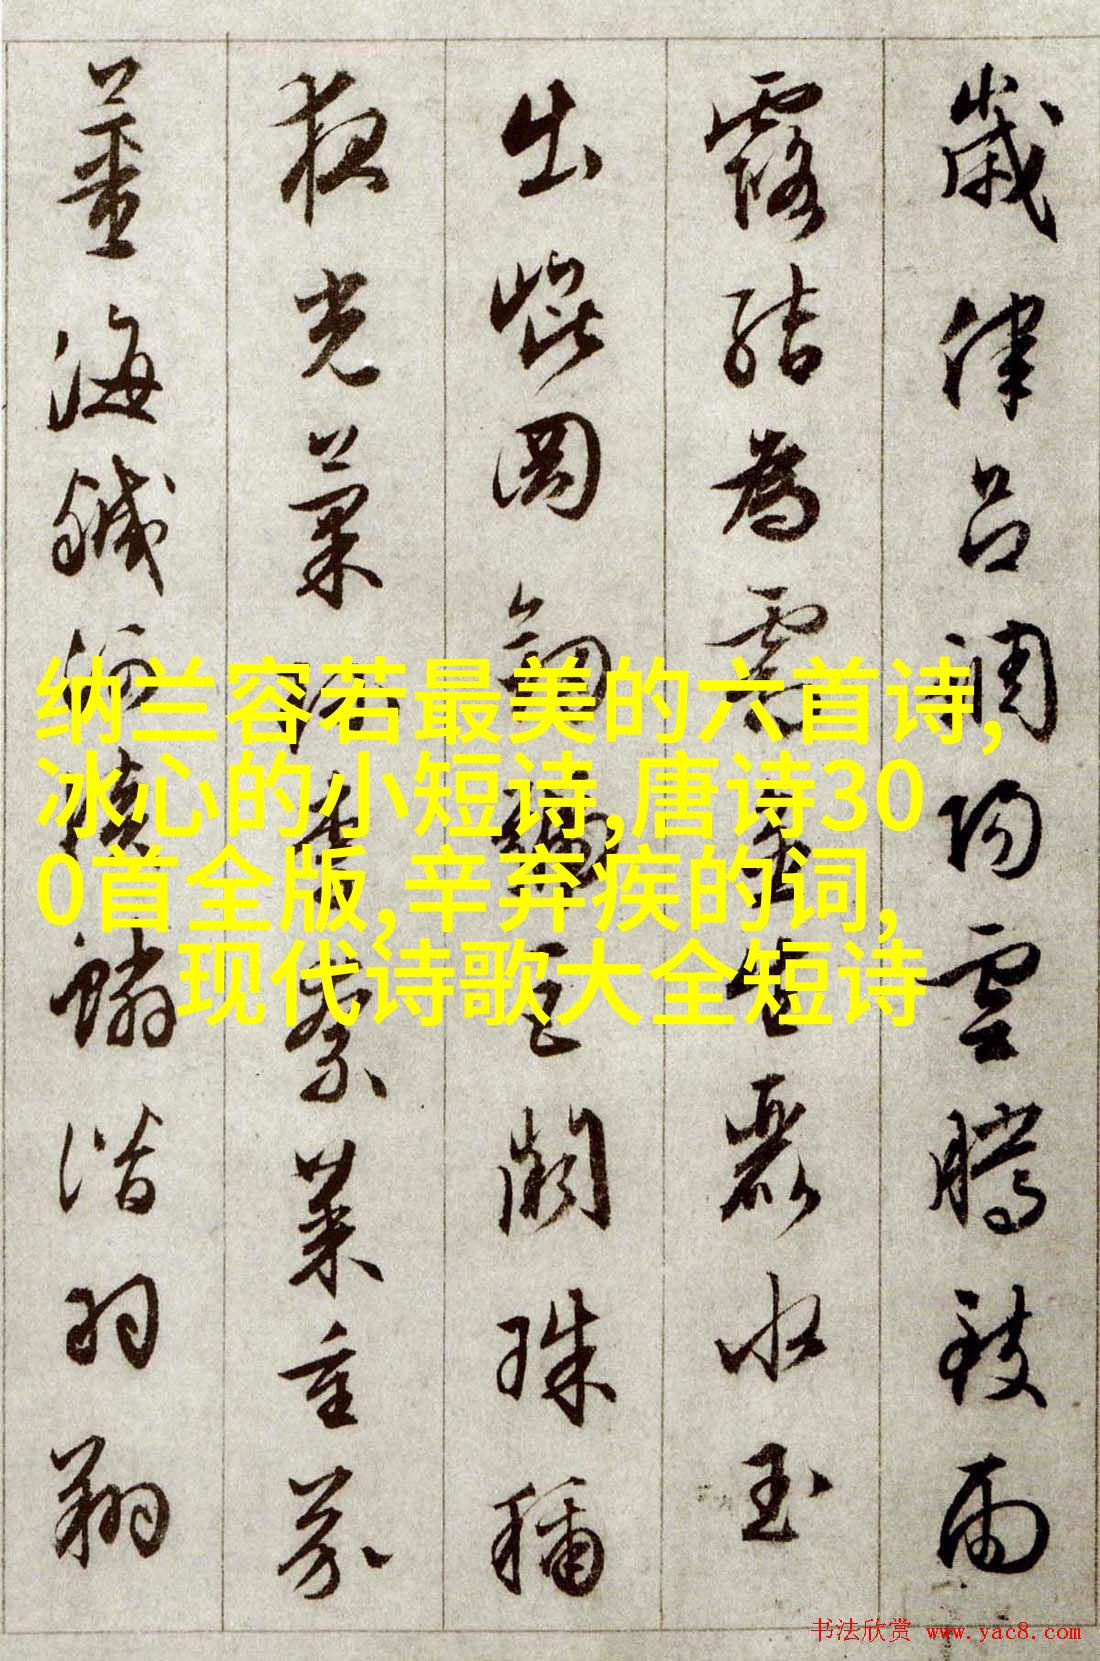 歲律呂調陽雲騰致雨
露結為霜金生麗水玉
出崐岡劒號巨闕珠稱
夜光菓珎李柰菜重芥
薑海鹹河淡鱗潛羽翔
纳兰容若最美的六首诗,
冰心的小短诗,唐诗30
0首全版,辛弃疾的词,
现代诗歌大全短诗
书法欣赏 www.yac8.com